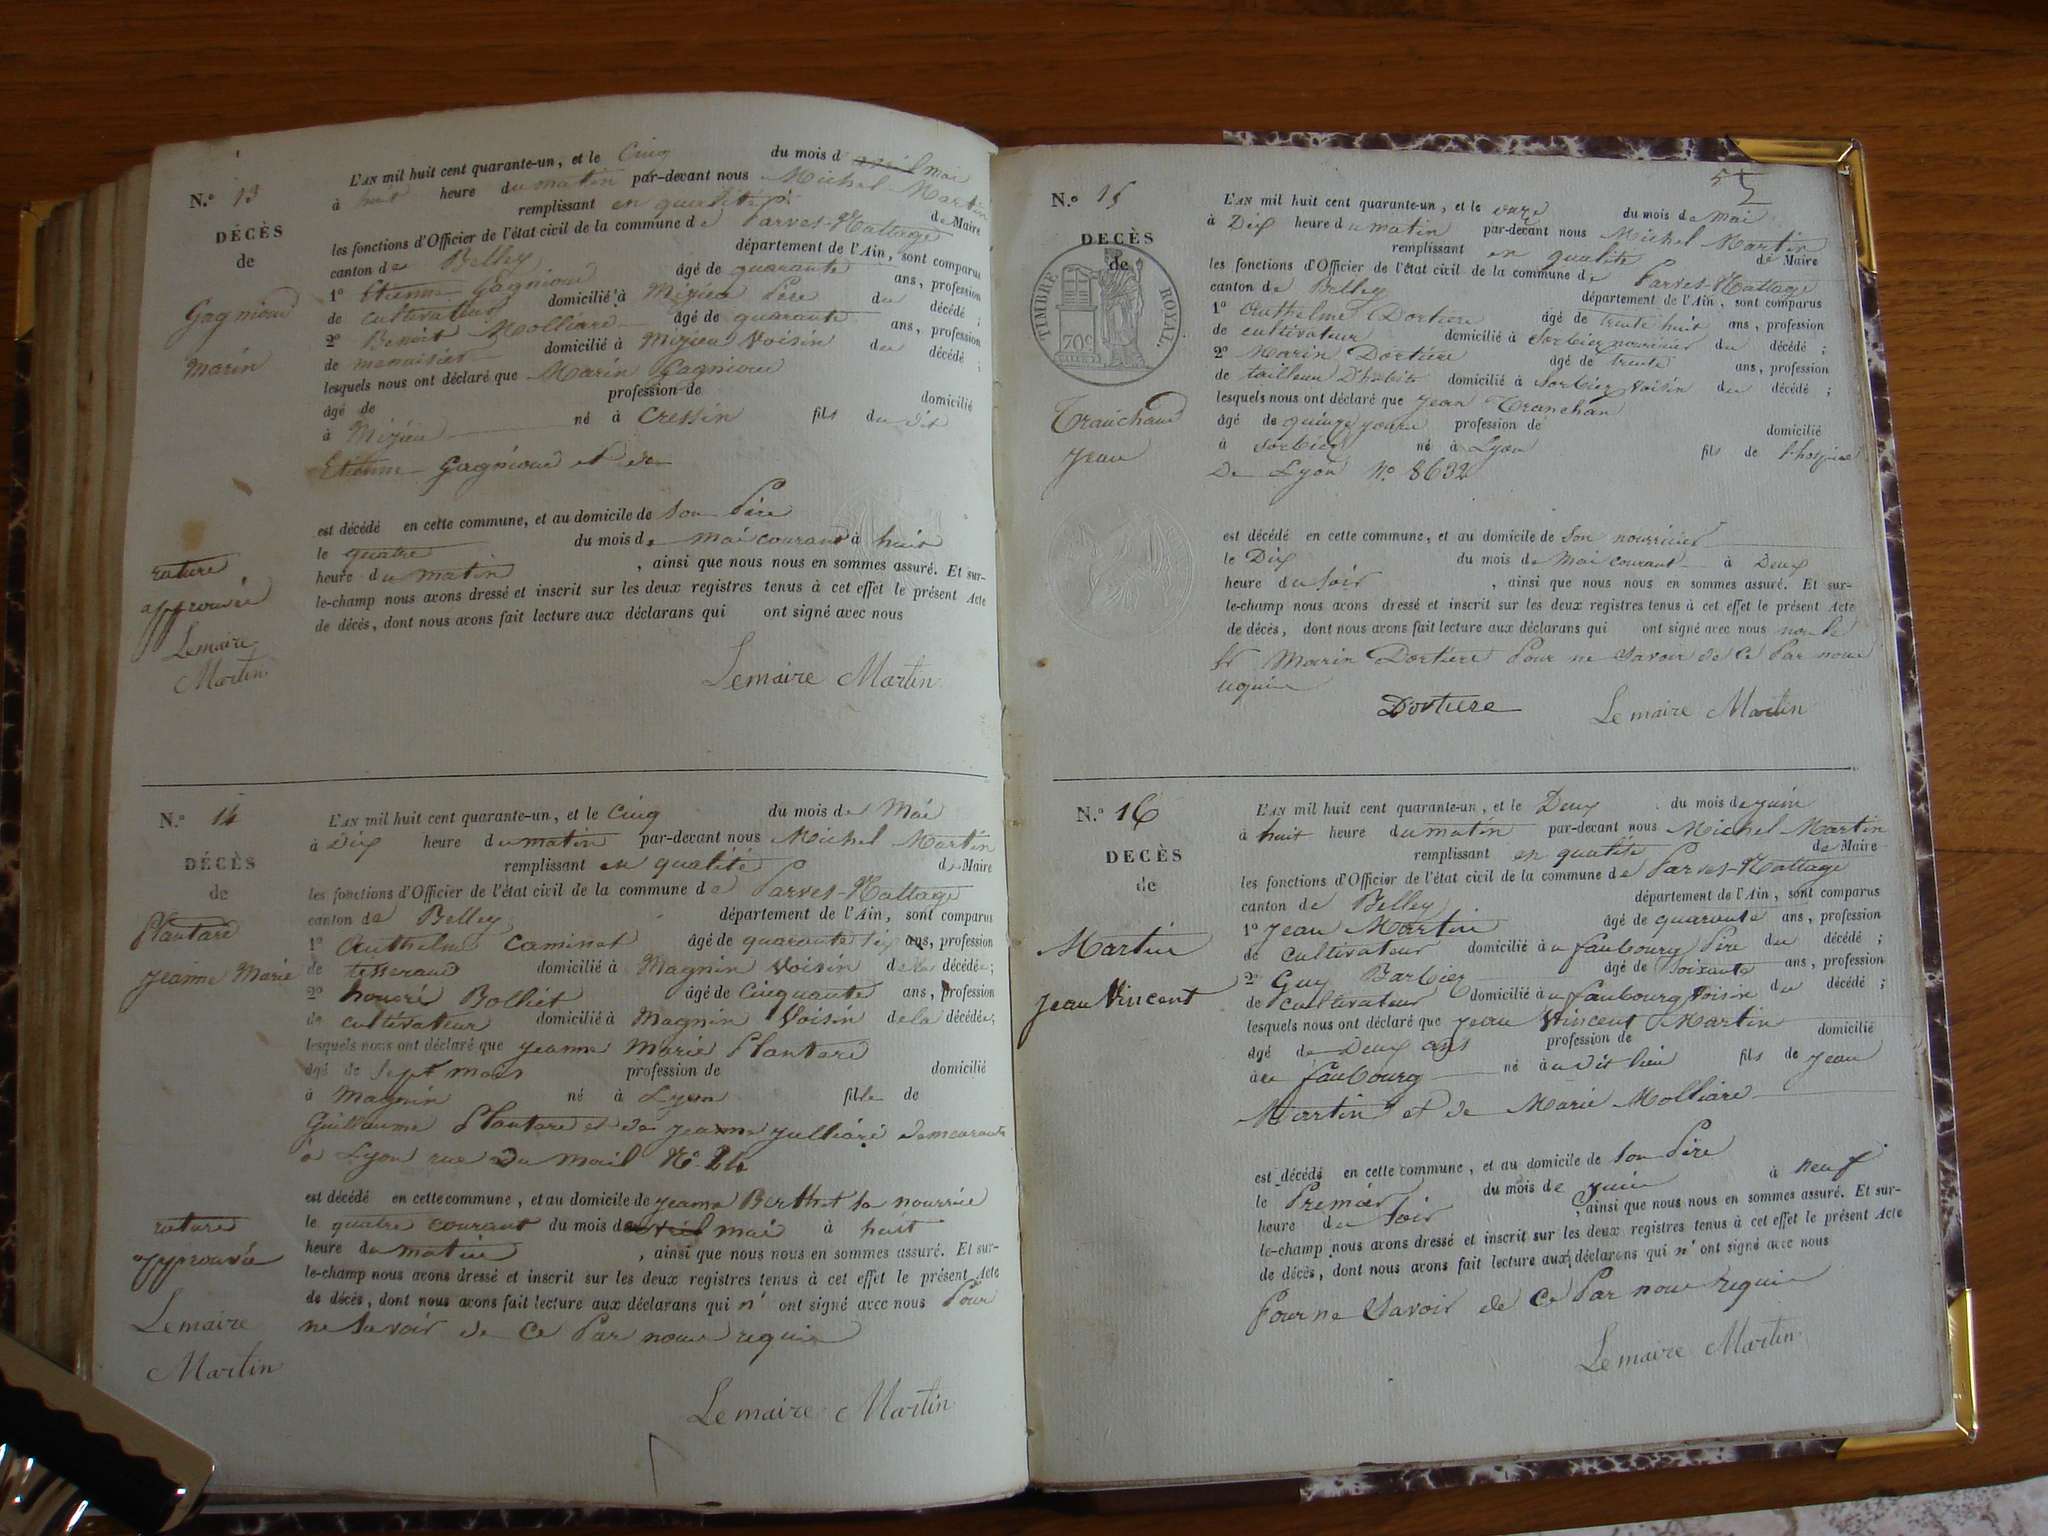 N.° 13
DÉCÈS
de
Gagnioud
Marin
L'AN mil huit cent quarante-un, et le Cinq du mois d avril mai
à huit heure du matin par-devant nous Michel Martin
remplissant en qualité de Maire
les fonctions d'Officier de l'état civil de la commune de Parves-Nattage
canton de Belley département de l'Ain, sont comparus
1° Etienne Gagnioud âgé de quarante ans, profession
de cultivateur domicilié à Mizieu Père du décédé;
2° Benoit Molliard âgé de quarante ans, profession
de menuisier domicilié à Mizieu Voisin du décédé;
lesquels nous ont déclaré que Marin Gagnioud
âgé de profession de domicilié
à Mizieu né à Cressin fils du dit
Etienne Gagnioud et de
est décédé en cette commune, et au domicile de son Père
le quatre du mois de mai courant à huit
heure du matin, ainsi que nous nous en sommes assuré. Et sur-
le-champ nous avons dressé et inscrit sur les deux registres tenus à cet effet le présent Acte
de décès, dont nous avons fait lecture aux déclarans qui ont signé avec nous
rature
approuvé
Lemaire
Martin
Lemaire Martin
N.° 14
DÉCÈS
de
Plantard
Jeanne Marie
L'AN mil huit cent quarante-un, et le Cinq du mois de Mai
à Dix heure du matin par-devant nous Michel Martin
remplissant en qualité de Maire
les fonctions d'Officier de l'état civil de la commune de Parves-Nattage
canton de Belley département de l'Ain, sont comparus
1° Anthelme Caminet âgé de quarante six ans, profession
de tisserand domicilié à Magnin Voisin de la décédée;
2° honoré Bolliet âgé de Cinquante ans, profession
de cultivateur domicilié à Magnin Voisin de la décédée;
lesquels nous ont déclaré que Jeanne Marie Plantard
âgé de sept mois profession de domicilié
à Magnin né à Lyon fille de
Guillaume Plantard et de Jeanne Julliard demeurant
à Lyon rue du Mail N° 24
est décédé en cette commune, et au domicile de Jeanne Berthet sa nourrice
le quatre courant du mois de avril mai à huit
heure du matin, ainsi que nous nous en sommes assuré. Et sur-
le-champ nous avons dressé et inscrit sur les deux registres tenus à cet effet le présent Acte
de décès, dont nous avons fait lecture aux déclarans qui n' ont signé avec nous Pour
ne savoir de ce Par nous requis
rature
approuvée
Lemaire
Martin
Lemaire Martin
N.° 15
DECÈS
de
TIMBRE ROYAL.
70 c
Tranchand
Jean
L'AN mil huit cent quarante-un, et le onze du mois de Mai
à Dix heure du matin par-devant nous Michel Martin
remplissant en qualité de Maire
les fonctions d'Officier de l'état civil de la commune de Parves-Nattage
canton de Belley département de l'Ain, sont comparus
1° Anthelme Dortiere âgé de trente huit ans, profession
de cultivateur domicilié à Sorbier nourricier du décédé;
2° Marin Dortiere âgé de trente ans, profession
de tailleur D'habits domicilié à Sorbier Voisin du décédé;
lesquels nous ont déclaré que Jean Tranchan
âgé de quinze jours profession de domicilié
à Sorbier né à Lyon fils de l'hospice
De Lyon N° 8632
est décédé en cette commune, et au domicile de son nourricier
le Dix du mois de Mai courant à Deux
heure du soir, ainsi que nous nous en sommes assuré. Et sur-
le-champ nous avons dressé et inscrit sur les deux registres tenus à cet effet le présent Acte
de décès, dont nous avons fait lecture aux déclarans qui ont signé avec nous non le
Marin Dortiere Pour ne savoir de ce Par nous
requis
Dortiere
Lemaire Martin
N.° 16
DECÈS
de
Martin
Jean Vincent
L'AN mil huit cent quarante-un, et le Deux du mois de juin
à huit heure du matin par-devant nous Michel Martin
remplissant en qualité de Maire
les fonctions d'Officier de l'état civil de la commune de Parves-Nattage
canton de Belley département de l'Ain, sont comparus
1° Jean Martin âgé de quarante ans, profession
de cultivateur domicilié au faubourg Père du décédé;
2° Guy Barbier âgé de soixante ans, profession
de cultivateur domicilié au faubourg Voisin du décédé;
lesquels nous ont déclaré que Jean Vincent Martin
âgé de Deux ans profession de domicilié
au faubourg né au dit lieu fils de Jean
Martin et de Marie Molliard
est décédé en cette commune, et au domicile de son Père
le Premier du mois de juin à neuf
heure du soir, ainsi que nous nous en sommes assuré. Et sur-
le-champ nous avons dressé et inscrit sur les deux registres tenus à cet effet le présent Acte
de décès, dont nous avons fait lecture aux déclarans qui n' ont signé avec nous
Pour ne savoir de ce Par nous requis
Lemaire Martin